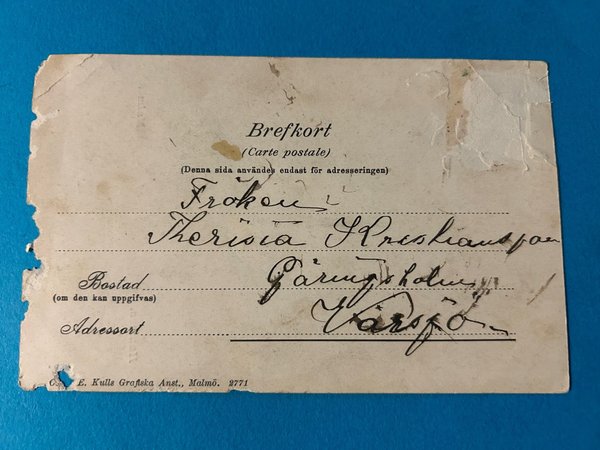 Brefkort
(Carte postale)
(Denna sida användes endast för adresseringen)
Fröken
Theresia Kristianson
Gäringsholm
Bostad
(om den kan uppgifvas)
Värsjö
Adressort
E. Kulls Grafiska Anst., Malmö. 2771